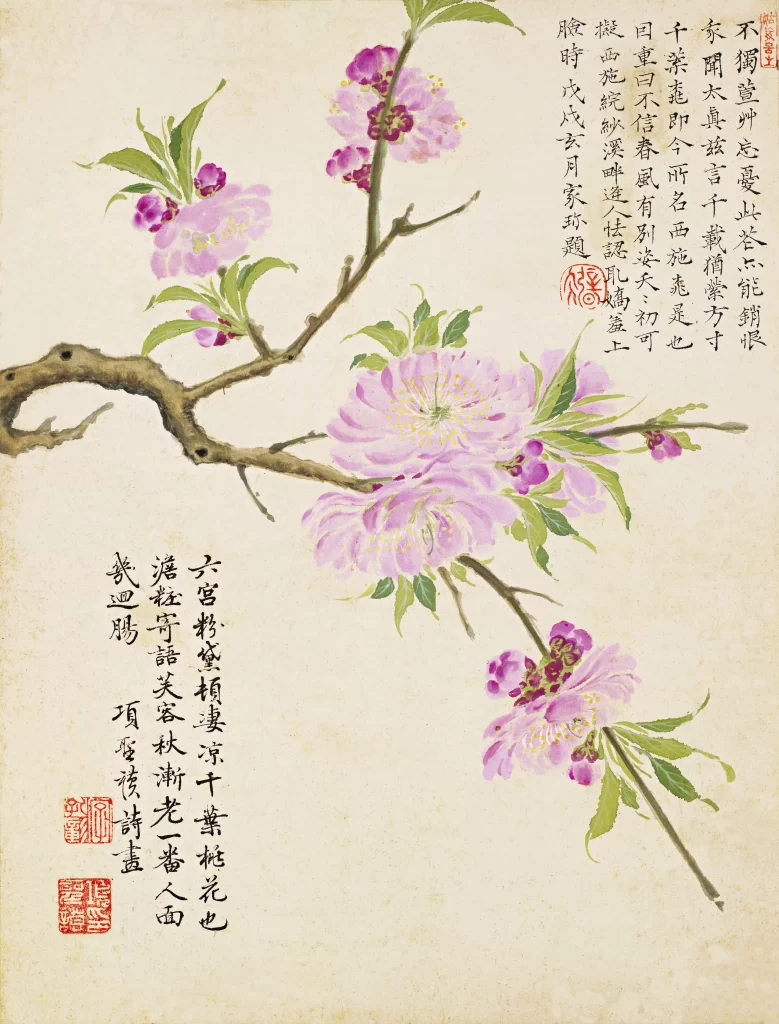 不獨萱艸忘憂此花亦能銷恨
聞太真茲言千載猶縈方寸
千葉桃即今所名西施桃是也
因重曰不信春風有別姿夭〻初可
擬西施浣紗溪畔逢人怯認取嬌羞上
臉時戊戌玄月家珎題
六宮粉黛頓淒涼千葉桃花也
澹粧寄語芙容秋漸老一番人面
幾迴腸 項聖謨詩畫